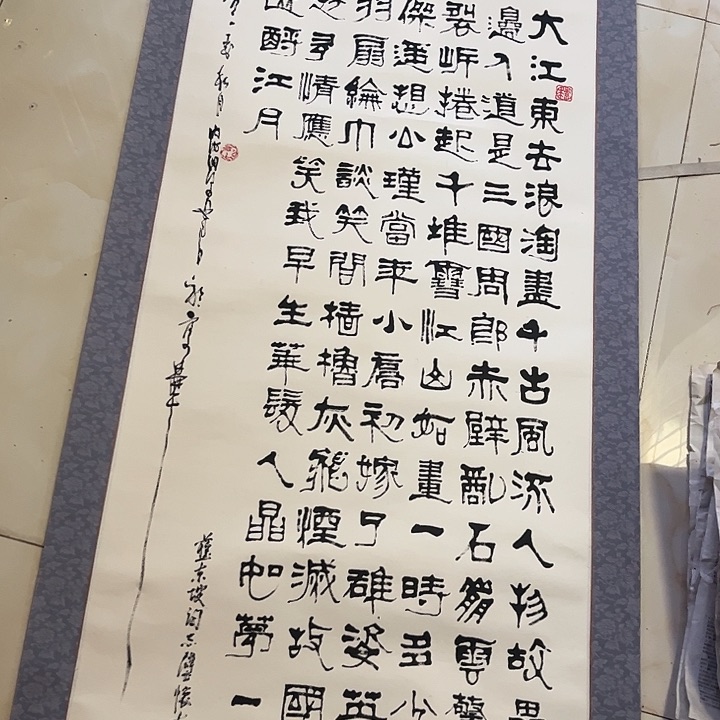 大江東去浪淘盡千古風流人物故
邊人道是三國周郎赤壁亂石崩雲驚
裂岸捲起千堆雪江山如畫一時多少
傑遥想公瑾當年小喬初嫁了雄姿英
羽扇綸巾談笑間檣櫓灰飛煙滅故國
多情應笑我早生華髮人如夢一
酹江月
蘇東坡詞赤壁懷